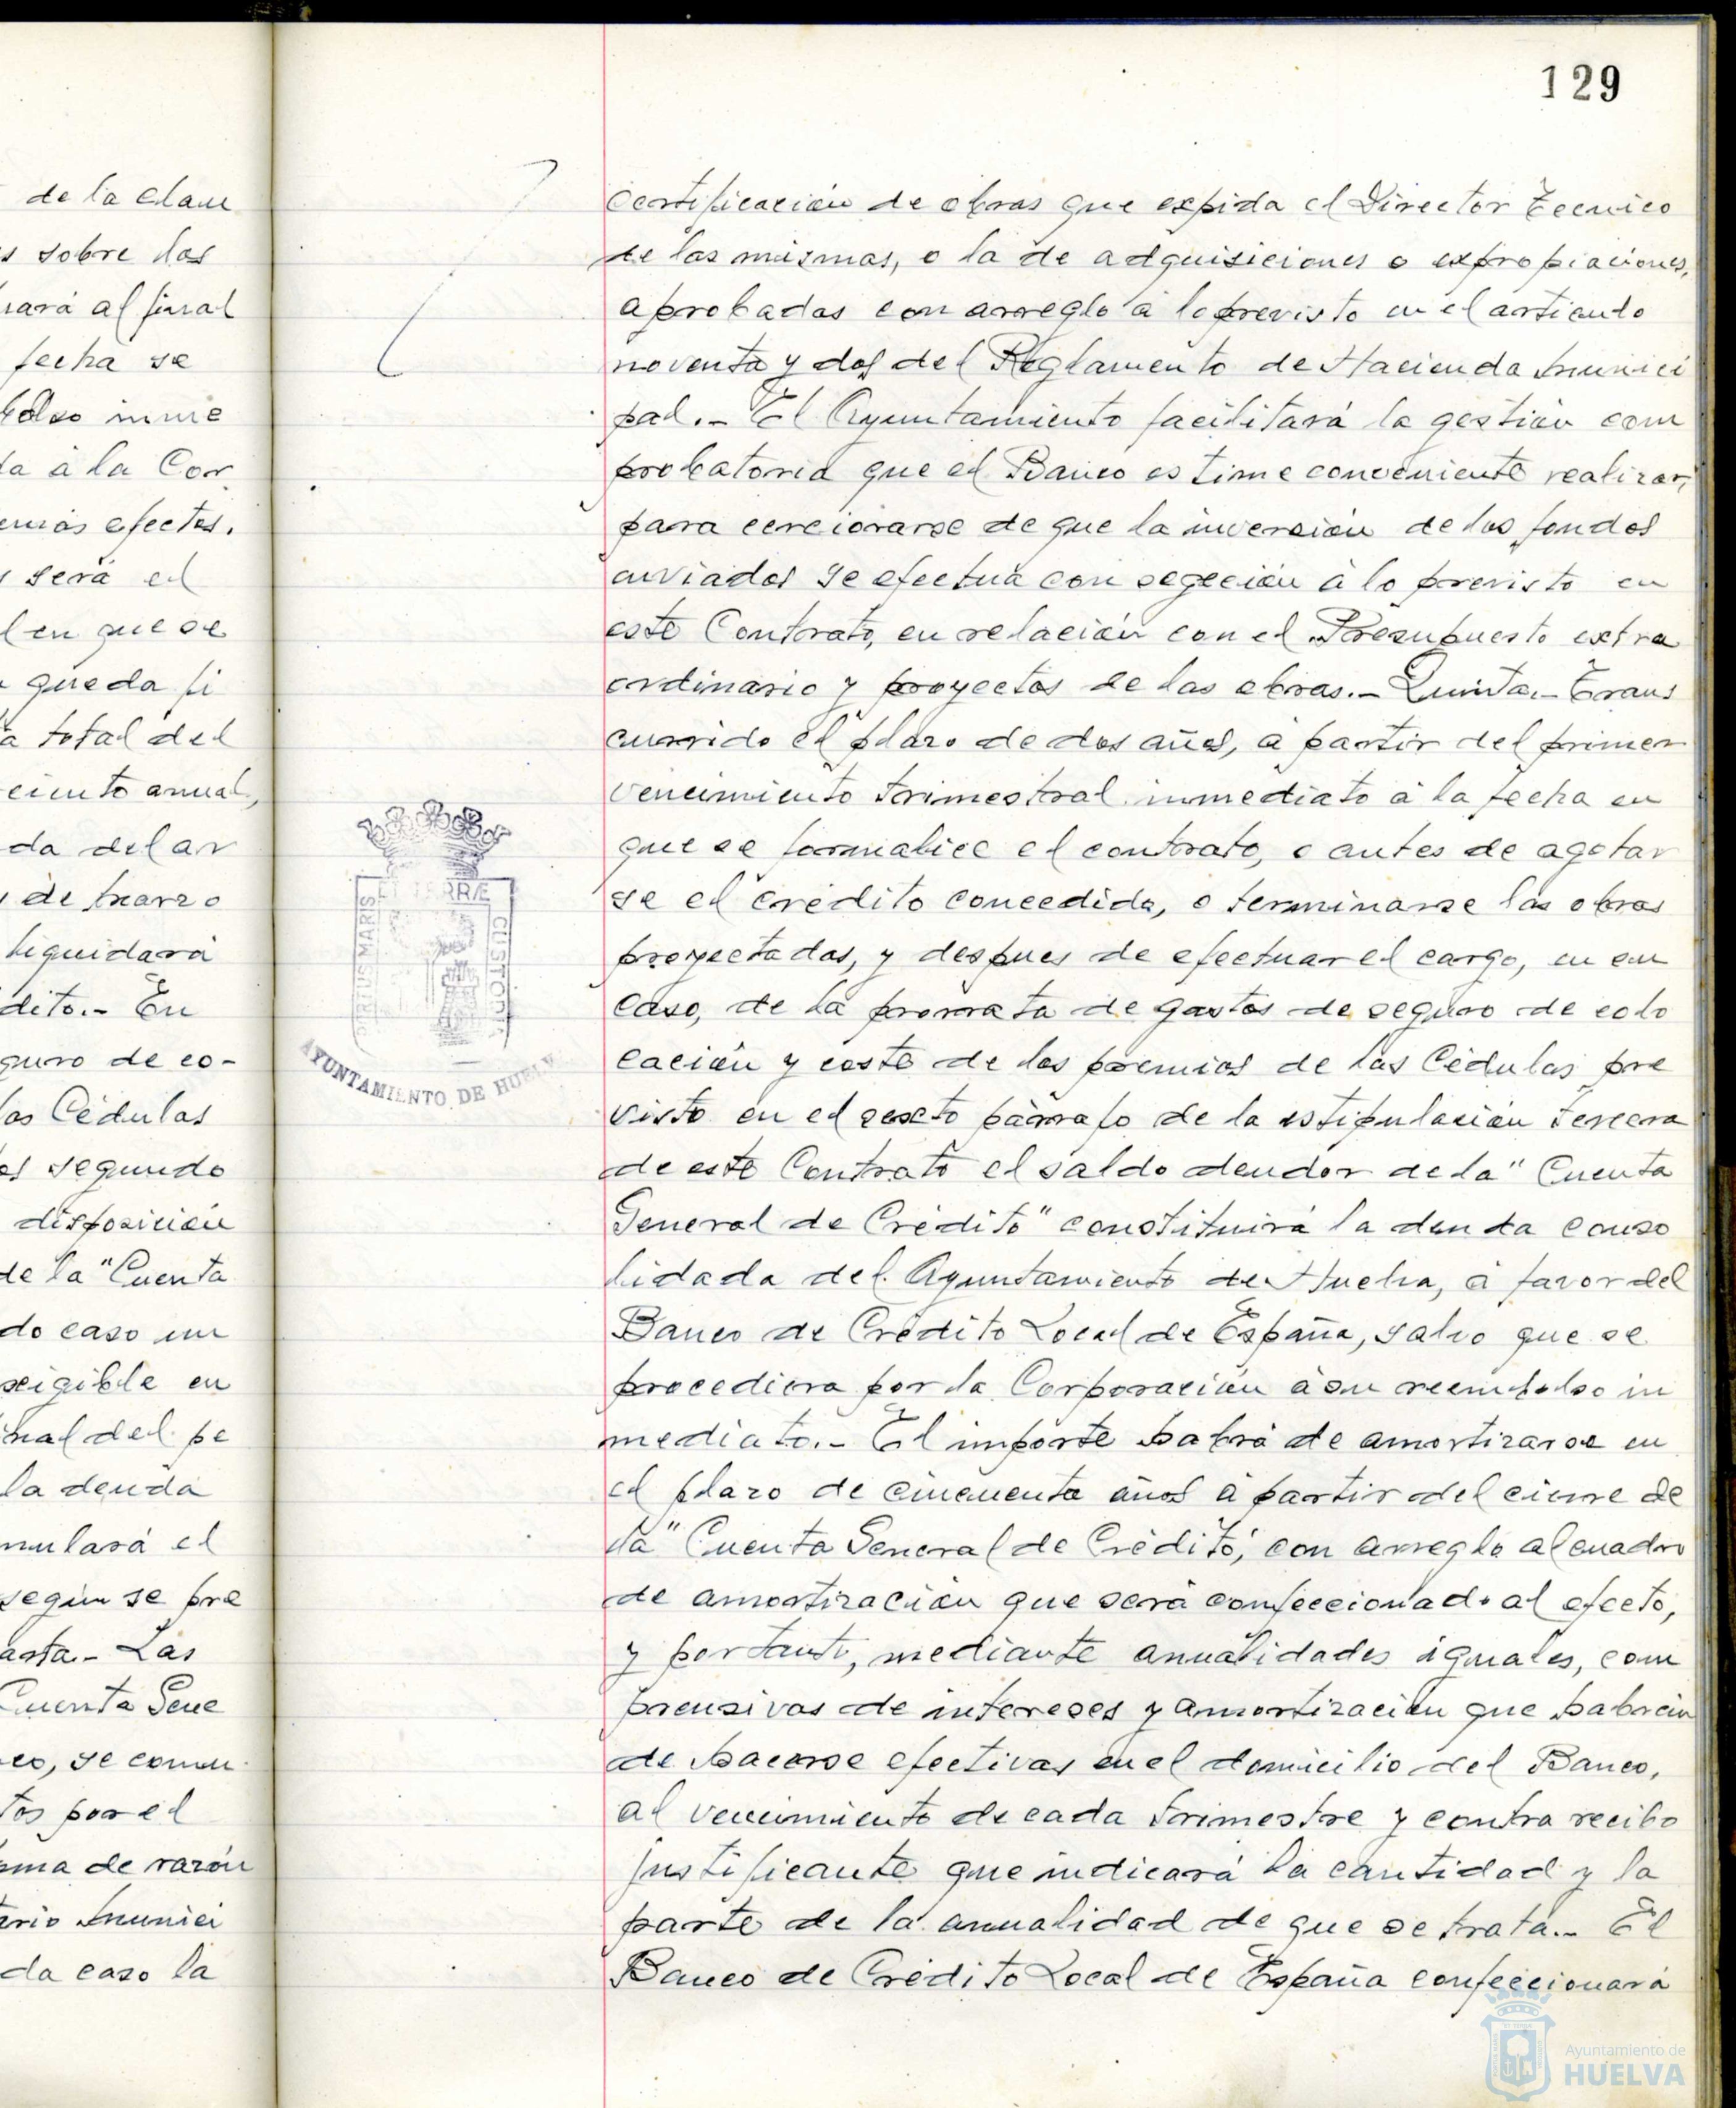 129
de la clau
s sobre las
rará al final
fecha se
bolso inme
da á la Cor
emás efectos.
será el
en que se
queda fi
a total del
ciento anual,
da del ar
de marzo
liquidará
dito.- En
guro de co-
las Cédulas
segundo
disposición
de la "Cuenta
do caso un
exigible en
nal del pe
la deuda
mulará el
según se pre
asta.- Las
Cuenta Gene
co, se comu
tos por el
oma de razón
ario Munici
da caso la
certificación de obras que expida el Director Tecnico
de las mismas, o la de adquisiciones o expropiaciones,
aprobadas con arreglo á lo previsto en el artículo
noventa y dos del Reglamento de Hacienda Munici
pal.- El Ayuntamiento facilitará la gestión com
probatoria que el Banco estime conveniente realizar,
para cerciorarse de que la inversión de los fondos
enviados se efectua con segeción á lo previsto en
este Contrato, en relación con el Presupuesto extra
ordinario y proyectos de las obras.- Quinta.- Trans
currido el plazo de dos años, á partir del primer
vencimiento trimestral inmediato á la fecha en
que se formalice el contrato, o antes de agotar
se el crédito concedido, o terminarse las obras
proyectadas, y despues de efectuar el cargo, en su
caso, de la prorrata de gastos de seguro de colo
cación y coste de los premios de las Cédulas pre
visto en el sexto párrafo de la estipulación tercera
de este Contrato el saldo deudor de la "Cuenta
General de Crédito" constituirá la deuda conso
lidada del Ayuntamiento de Huelva, á favor del
Banco de Crédito Local de España, salvo que se
procediera por la Corporación á su reembolso in
mediato.- El importe habrá de amortizarse en
el plazo de cincuenta años á partir del cierre de
la "Cuenta General de Crédito", con arreglo al cuadro
de amortización que será confeccionado al efecto,
y por tanto, mediante anualidades iguales, com
prensivas de intereses y amortización que habrán
de hacerse efectivas en el domicilio del Banco,
al vencimiento de cada trimestre y contra recibo
justificante que indicará la cantidad y la
parte de la anualidad de que se trata.- El
Banco de Crédito Local de España confeccionará
AYUNTAMIENTO DE HUELVA
Ayuntamiento de
HUELVA